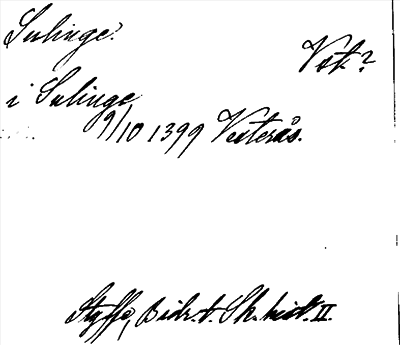 Salinge.
Vst. ?
i Salinge
9/10 1399 Vesterås.
Styffe, Bidr. t. Sk. hist. II.